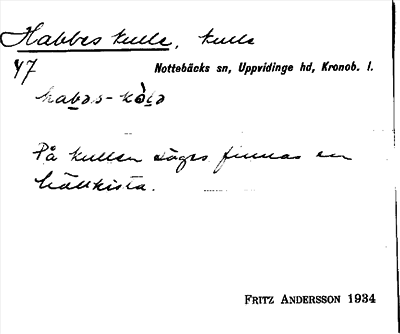 Habbes kulle, kulle
Y7
Nottebäcks sn, Uppvidinge hd, Kronob. l.
På kullen säges finnas en
hällkista.
FRITZ ANDERSSON 1934